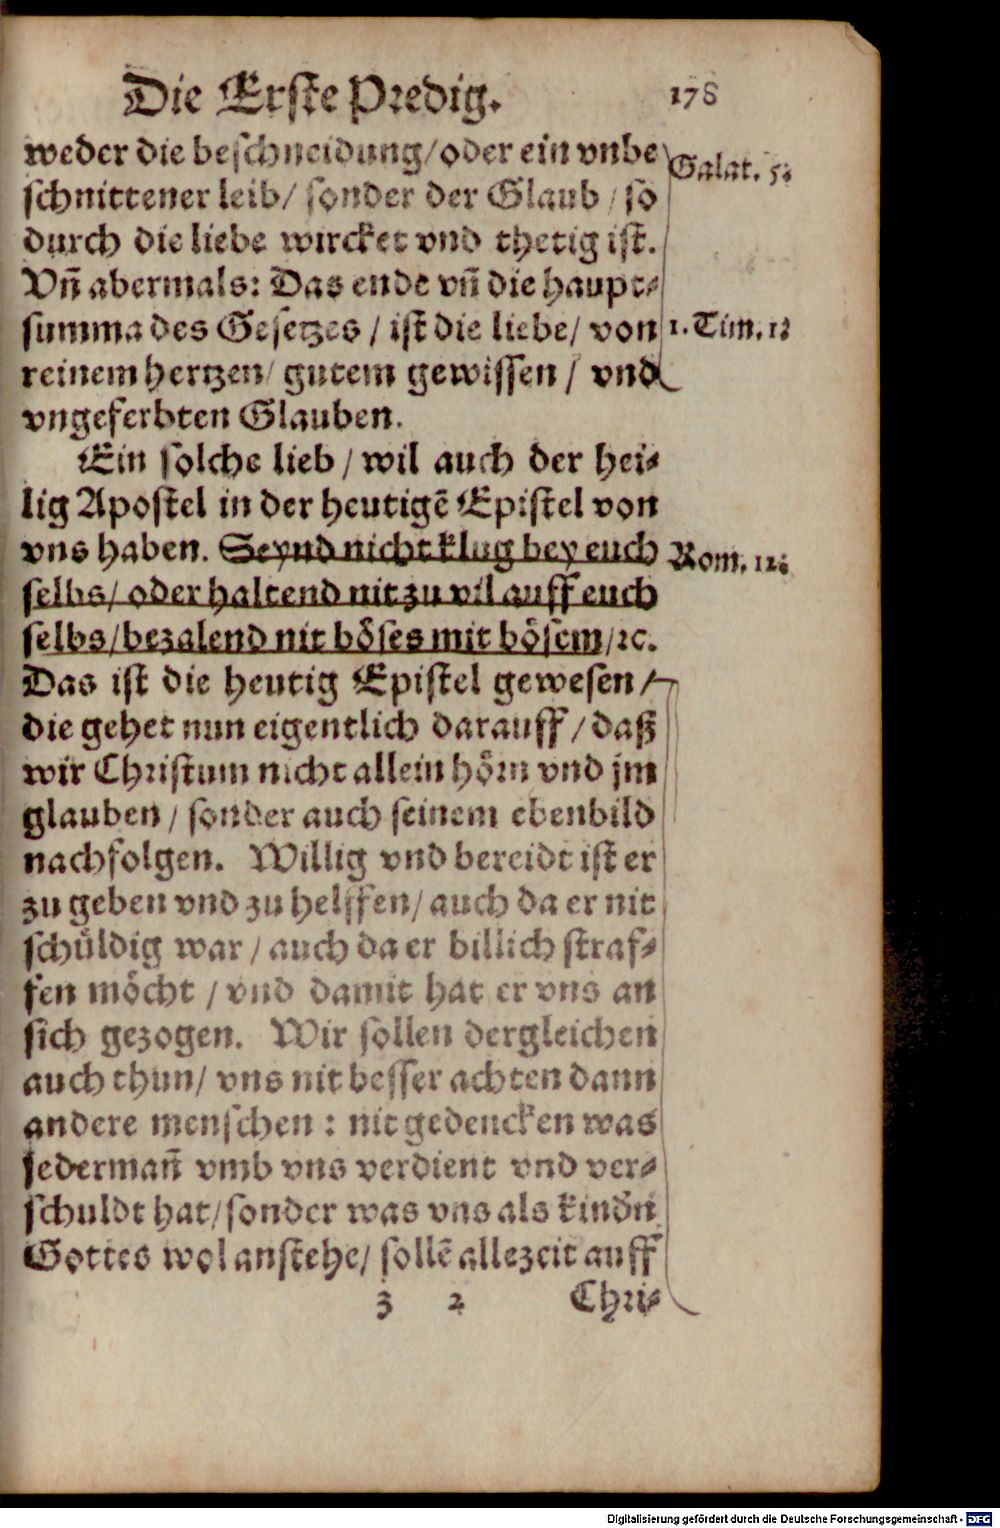 Die Erste Predig. 178
weder die beschneidung/oder ein vnbe
Galat. 5.
schnittener leib/ sonder der Glaub / so
durch die liebe wircket vnd thetig ist.
Vñ abermals: Das ende vñ die haupt-
summa des Gesetzes / ist die liebe/ von
1. Tim. 1.
reinem hertzen/ gutem gewissen / vnd
vngeferbten Glauben.
Ein solche lieb / wil auch der hei-
lig Apostel in der heutigē Epistel von
vns haben. Seynd nicht klug bey euch
Rom. 12.
selbs/ oder haltend nit zu vil auff euch
selbs/bezalend nit böses mit bösem/ꝛc.
Das ist die heutig Epistel gewesen/
die gehet nun eigentlich darauff / daß
wir Christum nicht allein hörn vnd jm
glauben / sonder auch seinem ebenbild
nachfolgen. Willig vnd bereidt ist er
zu geben vnd zu helffen/ auch da er nit
schüldig war / auch da er billich straf-
fen möcht / vnd damit hat er vns an
sich gezogen. Wir sollen dergleichen
auch thun/ vns nit besser achten dann
andere menschen : nit gedencken was
jederman̄ vmb vns verdient vnd ver-
schuldt hat/sonder was vns als kindn
Gottes wol anstehe/ sollē allezeit auff
z 2 Chri-
Digitalisierung gefördert durch die Deutsche Forschungsgemeinschaft - DFG